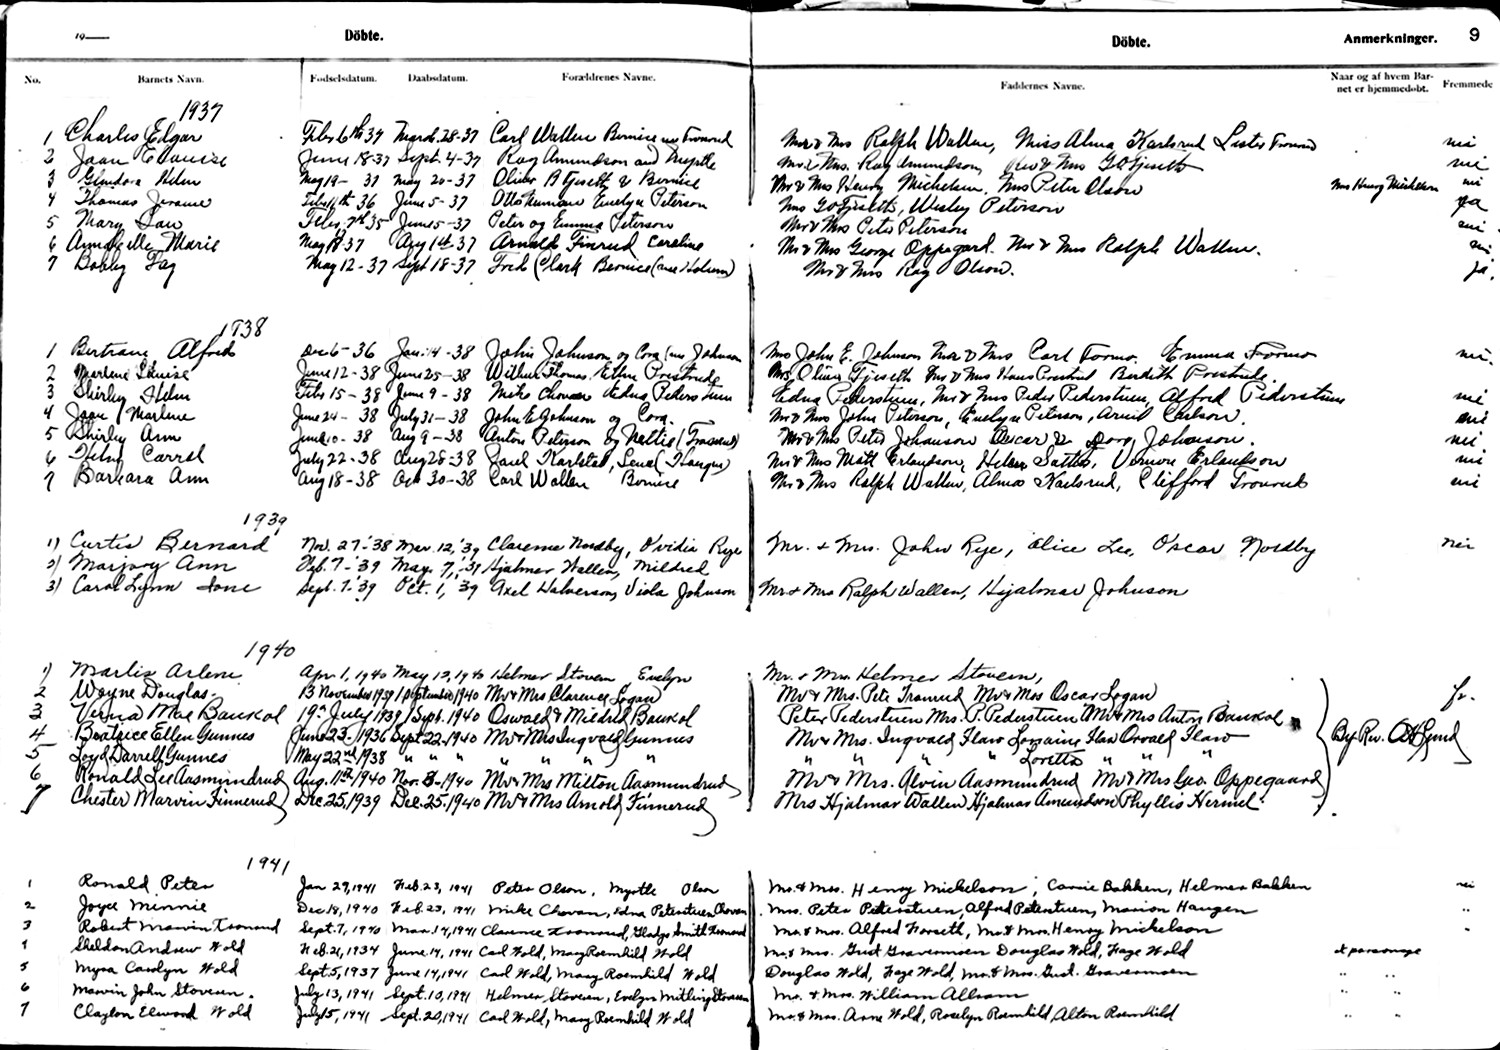 19 Döbte. Döbte. Anmerkninger. 9
No. Barnets Navn. Fodselsdatum. Daabsdatum. Forældrenes Navne. Faddernes Navne. Naar og af hvem Bar- Fremmede
net er hjemmedobt.
1937
1 Charles Elgar Feb. 6th 37 March 28-37 Carl Wallen Bernice nee Tronrud Mr & Mrs Ralph Wallen, Miss Alma Karlsrud Lester Tronrud nei
2 Joan Elouise June 18-37 Sept. 4-37 Ray Amundson and Myrtle Mr & Mrs. Ray Amundson, Rev & Mrs G O Fjeseth nei
3 Glendora Helen May 19- 37 May 20-37 Oliver B Fjeseth & Bernice Mr & Mrs Henry Mickelson, Mrs Peter Olson Mrs Henry Mickelson nei
4 Thomas Jerome Feb. 11th 36 June 5-37 Otto Numan Evelyn Peterson Mrs G O Fjeseth, Wesley Peterson ja
5 Mary Lou Feb. 7th 35 June 5-37 Peter og Emma Peterson Mr & Mrs Peter Peterson nei
6 Annabelle Marie May 18 37 Aug 1st 37 Arnold Finrud Caroline Mr & Mrs George Oppegard. Mr & Mrs Ralph Wallen. nei
7 Bobby Fay May 12-37 Sept 18-37 Fred Clark Bernice (nee Holum) Mr & Mrs Ray Olson. ja.
1938
1 Bertram Alfred Dec 6-36 Jan. 14-38 John Johnson og Cora (nee Johnson Mrs John E. Johnson Mr & Mrs Carl Formo. Emma Formo nei.
2 Marlene Louise June 12-38 June 25-38 Wilbur Thomas. Ethel Prestrude Mrs. Oliver Fjeseth Mr & Mrs Hans Prestrud Burdith Prestrude.
3 Shirley Helen Feb. 15-38 June 9-38 Mike Chovan Edna Peterstuen Edna Pederstuen, Mr & Mrs Peder Pederstuen, Alford Pederstuen nei
4 Joan Marlene June 24- 38 July 31-38 John E Johnson og Cora. Mr & Mrs John Peterson, Evelyn Peterson, Arvid Carlson. nei
5 Shirley Ann June 10-38 Aug 9-38 Anton Peterson og Nettie (Tronrud) Mr & Mrs Peter Johanson Oscar & Dora Johanson. nei
6 Carrol July 22-38 Aug 28-38 Paul Karlstad, Lena (Haugen) Mr & Mrs Matt Erlandson, Helen Satter, Vernon Erlandson nei
7 Barbara Ann Aug 18-38 Oct 30-38 Carl Wallen Bernice Mr & Mrs Ralph Wallen, Alma Karlsrud, Clifford Tronrud nei
1939
1) Curtis Bernard Nov. 27-'38 Mar. 12,'39 Clarence Nordby, Ovidia Rye Mr. & Mrs. John Rye, Alice Lee, Oscar Nordby nei
2) Marjory Ann Feb. 7-'39 May. 7,'39 Hjalmer Wallen, Mildred
3) Carol Lynn Ione Sept. 7-'39 Oct. 1,'39 Axel Halverson, Viola Johnson Mr & Mrs Ralph Wallen, Hjalmar Johnson
1940
1) Marlis Arlene Apr. 1, 1940 May 12, 1940 Helmer Stoven, Evelyn Mr. & Mrs. Helmer Stoven,
2 Wayne Douglas. 13 November 1939 1 September 1940 Mr & Mrs Clarence Logan Mr & Mrs. Pete Tronrud Mr & Mrs Oscar Logan
3 Verna Mae Baukol 19th July 1939 1 Sept. 1940 Oswald & Mildred Baukol Peter Pederstuen Mrs. P. Pederstuen Mr & Mrs Anton Baukol
4 Beatrice Ellen Gunnes June 23 1936 Sept 22, 1940 Mr & Mrs Ingvald Gunnes Mr & Mrs. Ingvald Flaw Lorraine Flaw Orvald Flaw By Rev.
5 Loyd Darrell Gunnes May 22nd 1938 " " " " " " " " Loretta " "
6 Ronald Lee Aasmundrud Aug. 11th 1940 Nov. 3-1940 Mr & Mrs Milton Aasmundrud Mr & Mrs. Alvin Aasmundrud Mr & Mrs Geo. Oppegaard
7 Chester Marvin Finnerud Dec 25, 1939 Dec. 25, 1940 Mr & Mrs Arnold Finnerud Mrs Hjalmar Wallen Hjalmar Amundson Phyllis Hermel
1941
1 Ronald Peter Jan 29, 1941 Feb. 23, 1941 Peter Olson, Myrtle Olson Mr. & Mrs. Henry Mickelson, Carrie Bakken, Helmer Bakken nei
2 Joyce Minnie Dec 18, 1940 Feb. 23, 1941 Mike Chovan, Edna Peterstuen Chovan Mrs. Peter Peterstuen, Alfred Peterstuen, Marion Haugen "
3 Robert Marvin Tronrud Sept. 7, 1940 Mar. 14, 1941 Clarence Tronrud, Gladys Smith Tronrud Mr & Mrs. Alfred Forseth, Mr. & Mrs. Henry Mickelson "
4 Sheldon Andrew Wold Feb. 21, 1934 June 14, 1941 Carl Wold, Mary Roemhild Wold Mr. & Mrs. Gust Gravemoen Douglas Wold, Faye Wold at parsonage
5 Myra Carolyn Wold Sept. 5, 1937 June 14, 1941 Carl Wold, Mary Roemhild Wold Douglas Wold, Faye Wold, Mr. & Mrs. Gust. Gravemoen " "
6 Marvin John Stoven. July 13, 1941 Sept. 10, 1941 Helmer Stoven, Evelyn Mitling Stoven Mr. & Mrs. William Allram " "
7 Clayton Elwood Wold July 15, 1941 Sept. 20, 1941 Carl Wold, Mary Roemhild Wold Mr. & Mrs. Arne Wold, Roselyn Roemhild, Alton Roemhild " "